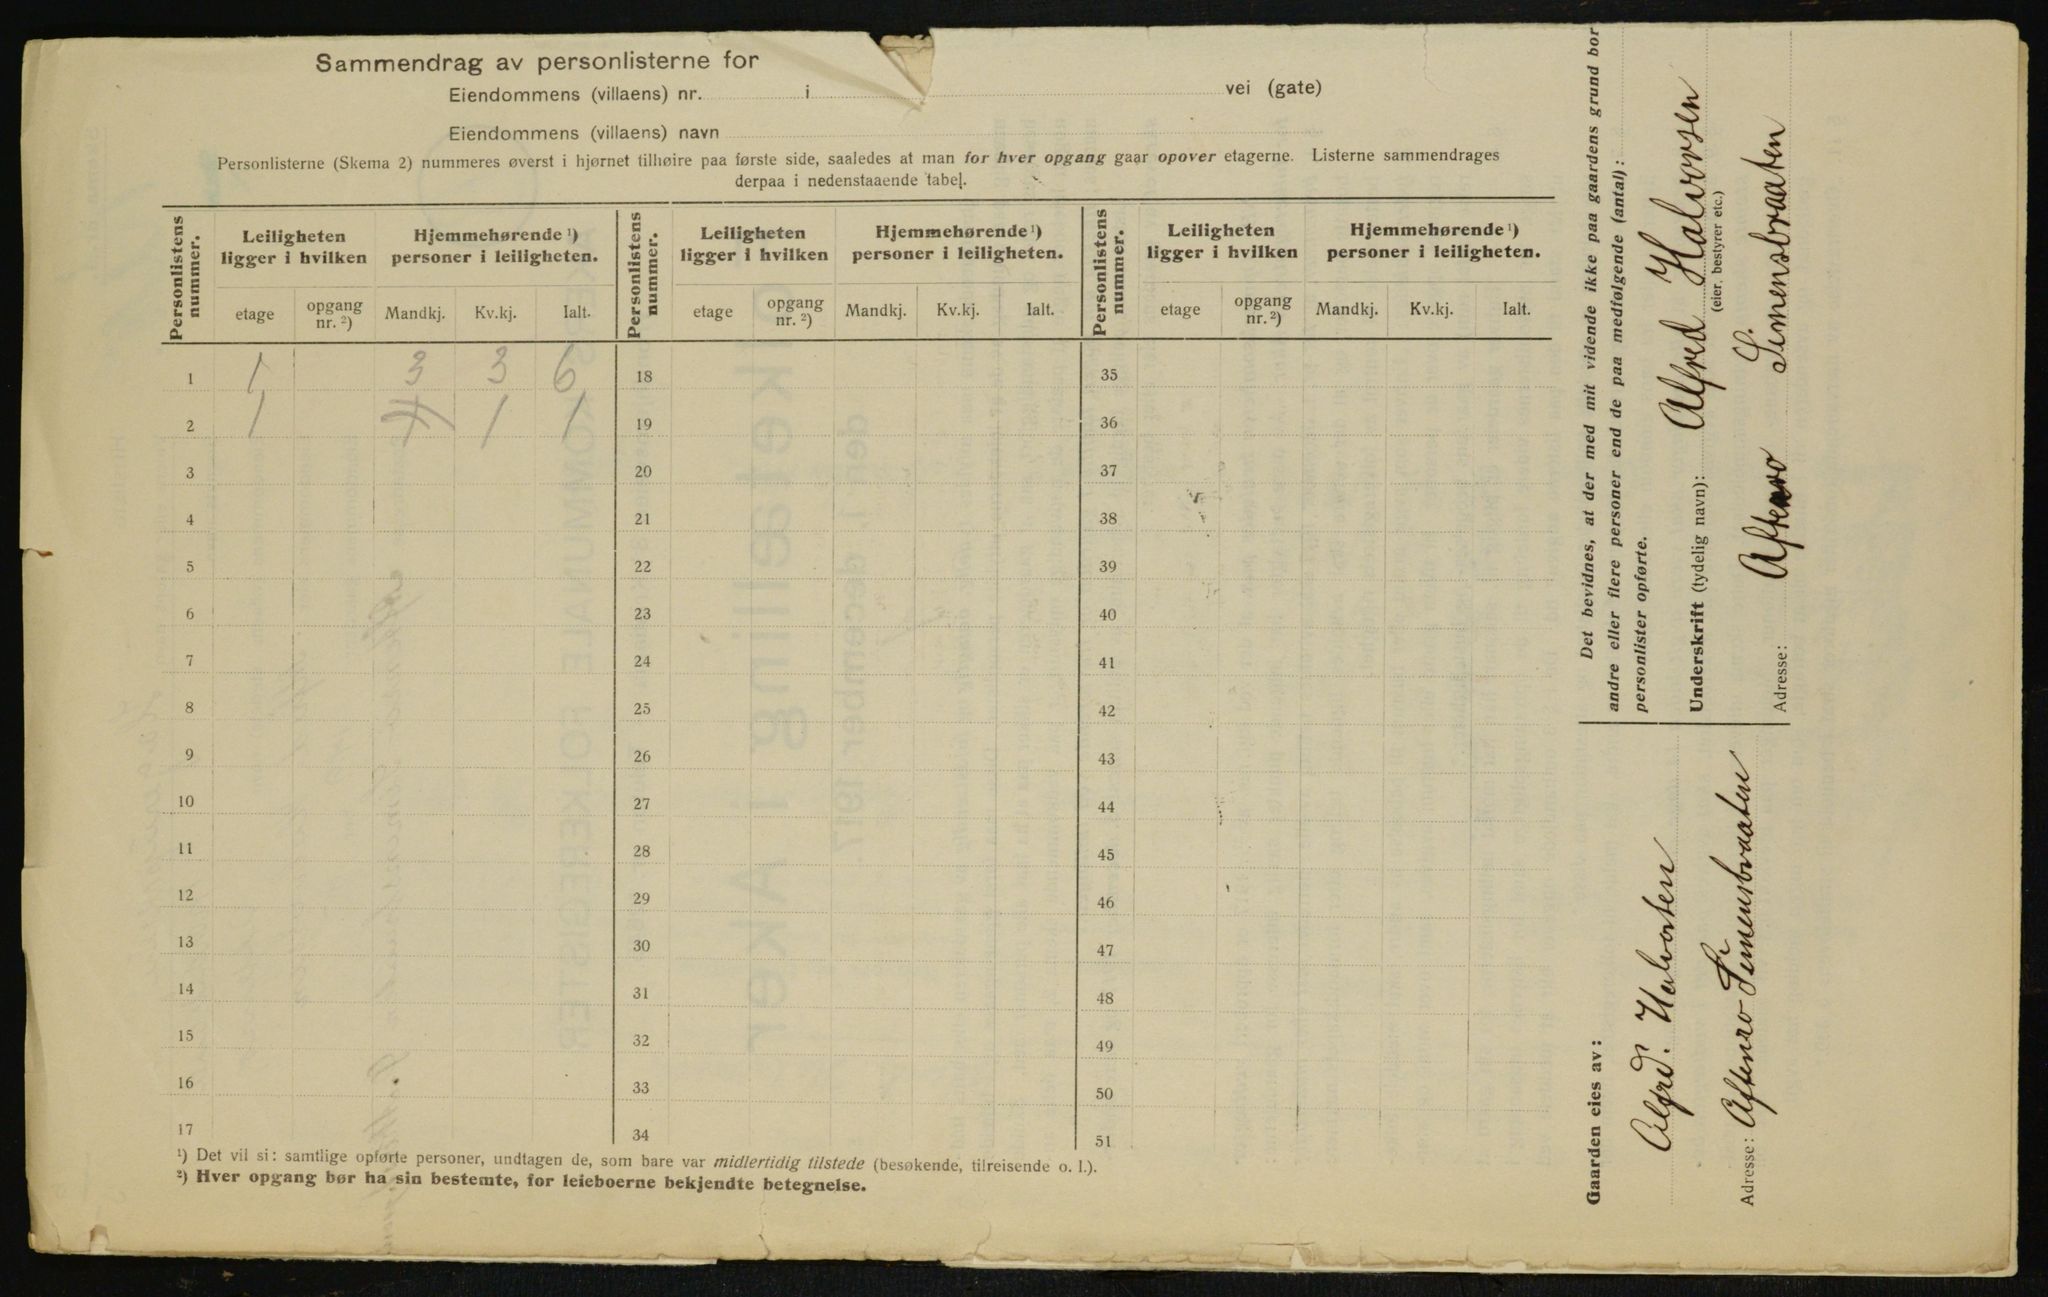 Sammendrag av personlisterne for
Eiendommens (villaens) nr. i vei (gate)
Eiendommens (villaens) navn
Personlisterne (Skema 2) nummeres øverst i hjørnet tilhøire paa første side, saaledes at man for hver opgang gaar opover etagerne. Listerne sammendrages
derpaa i nedenstaaende tabel.
Personlistens nummer. Leiligheten ligger i hvilken Hjemmehørende ¹) personer i leiligheten. Personlistens nummer. Leiligheten ligger i hvilken Hjemmehørende ¹) personer i leiligheten. Personlistens nummer. Leiligheten ligger i hvilken Hjemmehørende ¹) personer i leiligheten.
etage opgang nr. ²) Mandkj. Kv.kj. Ialt. etage opgang nr. ²) Mandkj. Kv.kj. Ialt. etage opgang nr. ²) Mandkj. Kv.kj. Ialt.
1 1 3 3 6 18 35
2 1 1 1 19 36
3 20 37
4 21 38
5 22 39
6 23 40
7 24 41
8 25 42
9 26 43
10 27 44
11 28 45
12 29 46
13 30 47
14 31 48
15 32 49
16 33 50
17 34 51
¹) Det vil si: samtlige opførte personer, undtagen de, som bare var midlertidig tilstede (besøkende, tilreisende o. l.).
²) Hver opgang bør ha sin bestemte, for leieboerne bekjendte betegnelse.
Det bevidnes, at der med mit vidende ikke paa gaardens grund bor
andre eller flere personer end de paa medfølgende (antal):
personlister opførte.
Underskrift (tydelig navn): Alfred Halvorsen
(eier, bestyrer etc.)
Adresse: Aftenro Simensbraaten
Gaarden eies av:
Alfred. Halvorsen
Adresse: Aftenro Simensbraaten